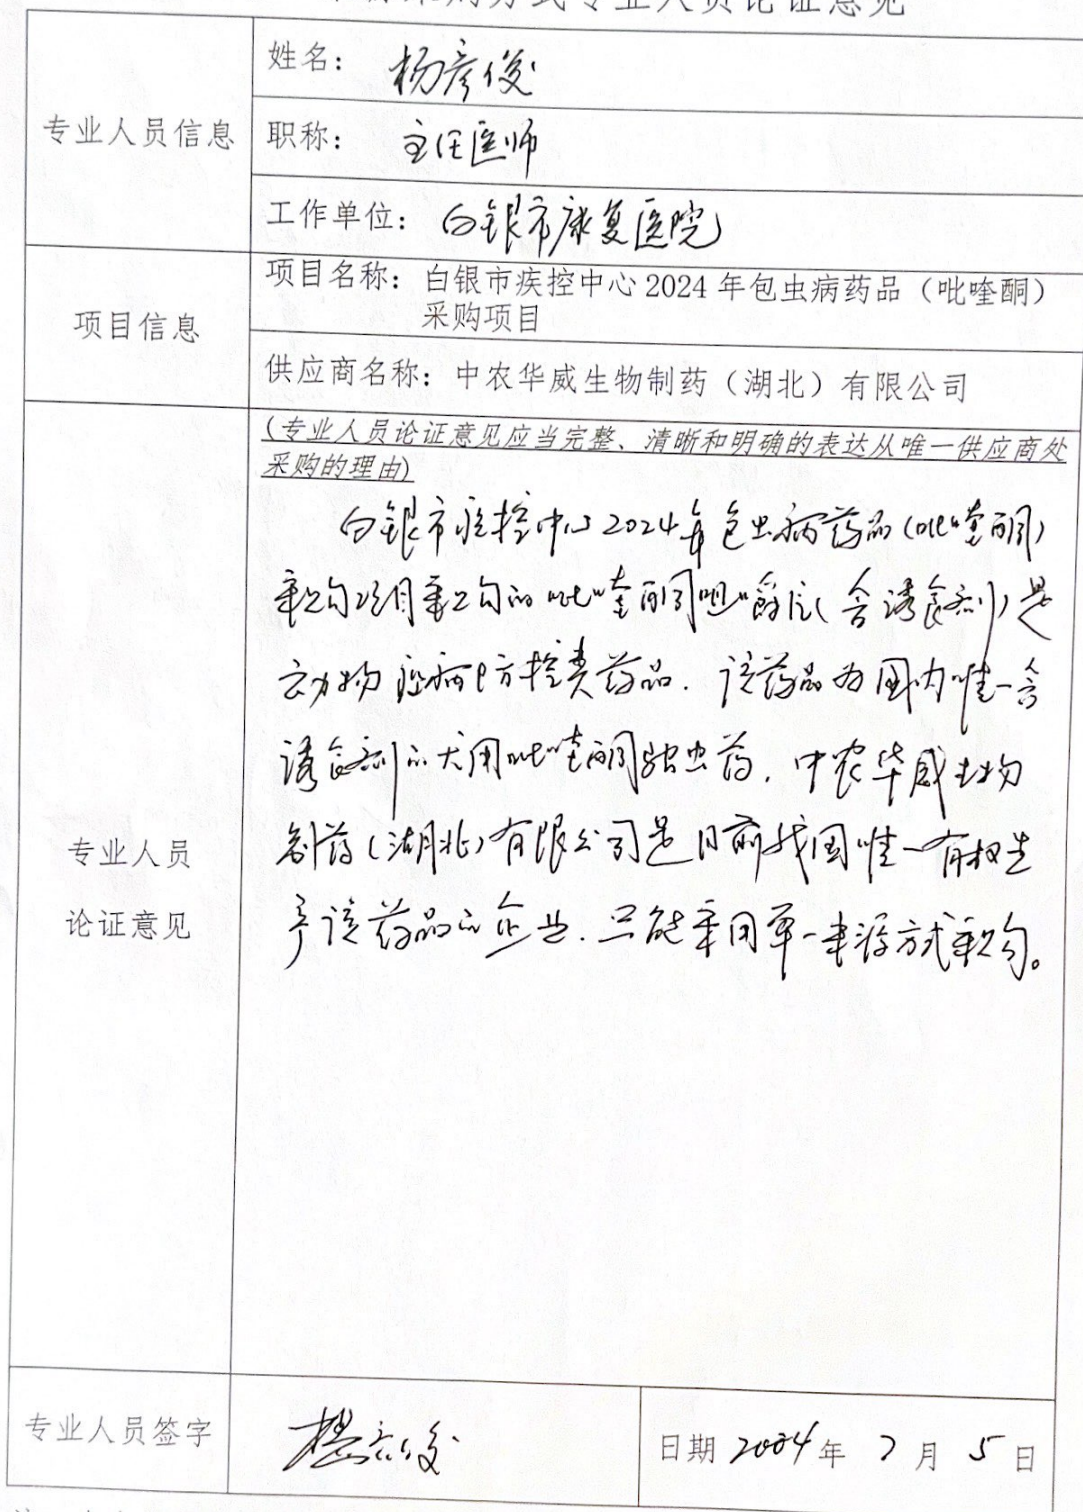 采购方式专业人员论证意见
专业人员信息
姓名： 杨彦俊
职称： 主任医师
工作单位： 白银市康复医院
项目信息
项目名称：白银市疾控中心2024年包虫病药品（吡喹酮）
采购项目
供应商名称：中农华威生物制药（湖北）有限公司
专业人员
论证意见
(专业人员论证意见应当完整、清晰和明确的表达从唯一供应商处
采购的理由)
白银市疾控中心2024年包虫病药品(吡喹酮)
采购项目采购的吡喹酮咀嚼片(含诱食剂)是
动物疫病防控类药品．该药品为国内唯一含
诱食剂的犬用吡喹酮驱虫药，中农华威生物
制药(湖北)有限公司是目前我国唯一有权生
产该药品的企业．只能采用单一来源方式采购。
专业人员签字
杨彦俊
日期 2024年 7月 5日